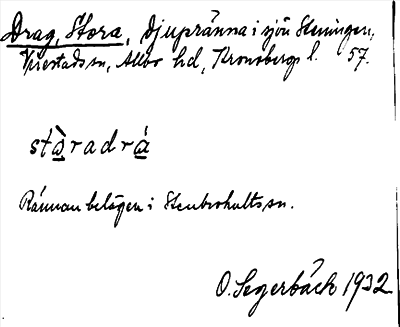 Drag, Stora, djupränna i sjön Steningen,
Virestads sn, Allbo hd, Kronobergs l. 57.
stà̲radrá̲
Rännan belägen i Stenbrohults sn.
O. Segerbäck 1932